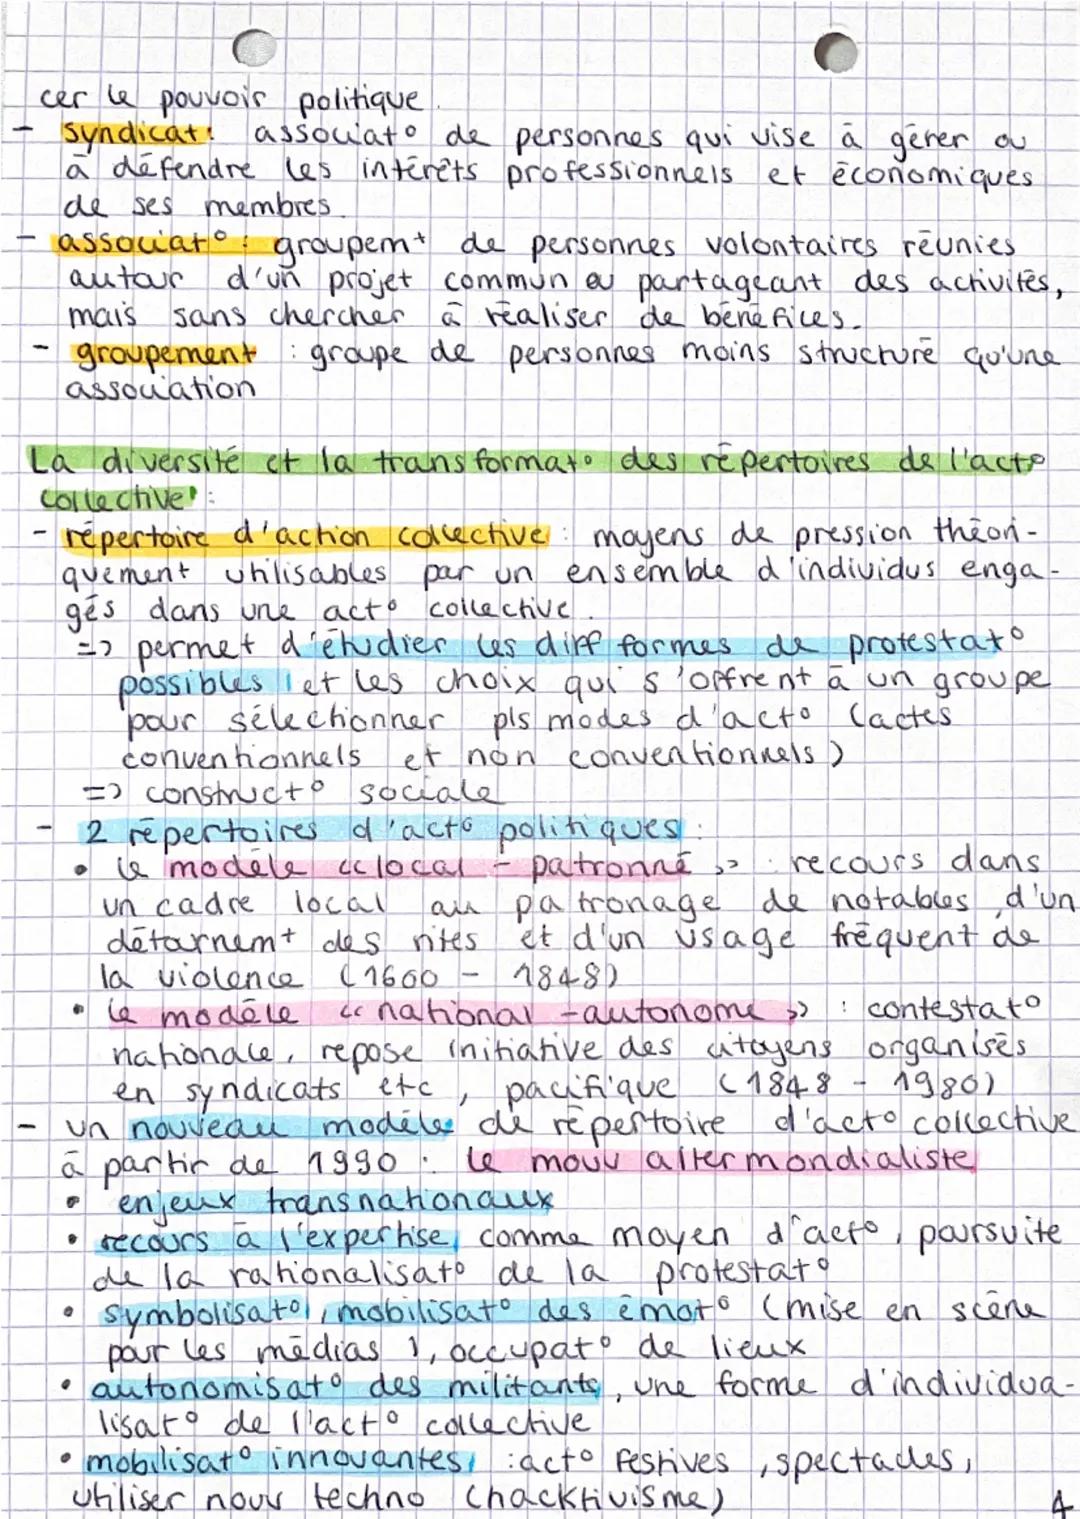 cer le pouvoir politique.
- syndicat : associat° de personnes qui vise à gérer ou
à défendre les intérêts professionnels et économiques
de ses membres.
- associat° : groupem+ de personnes volontaires réunies
autour d'un projet commun ou partageant des activités,
mais sans chercher à réaliser de bénéfices.
- groupement : groupe de personnes moins structuré qu'une
association
La diversité et la transformat° des répertoires de l'act°
collective :
- répertoire d'action collective : moyens de pression théori-
quement utilisables par un ensemble d'individus enga-
gés dans une act° collective.
=> permet d'étudier les diff formes de protestat°
possibles et les choix qui s'offrent à un groupe
pour sélectionner pls modes d'act° (actes
conventionnels et non conventionnels)
=> construct° sociale
- 2 répertoires d'act° politiques :
• le modèle « local - patronné » : recours dans
un cadre local au patronage de notables, d'un
détournem+ des rites et d'un usage fréquent de
la violence (1600 - 1848)
• le modèle « national - autonome » : contestat°
nationale, repose initiative des citoyens organisés
en syndicats etc, pacifique (1848 - 1980)
- un nouveau modèle de répertoire d'act° collective
à partir de 1990 : le mouv altermondialiste
• enjeux transnationaux
• recours à l'expertise, comme moyen d'act°, poursuite
de la rationalisat° de la protestat°
• symbolisat°, mobilisat° des émot° (mise en scène
pour les médias), occupat° de lieux
• autonomisat° des militants, une forme d'individua-
lisat° de l'act° collective
• mobilisat° innovantes : act° festives, spectacles,
utiliser nouv techno (hacktivisme)
4